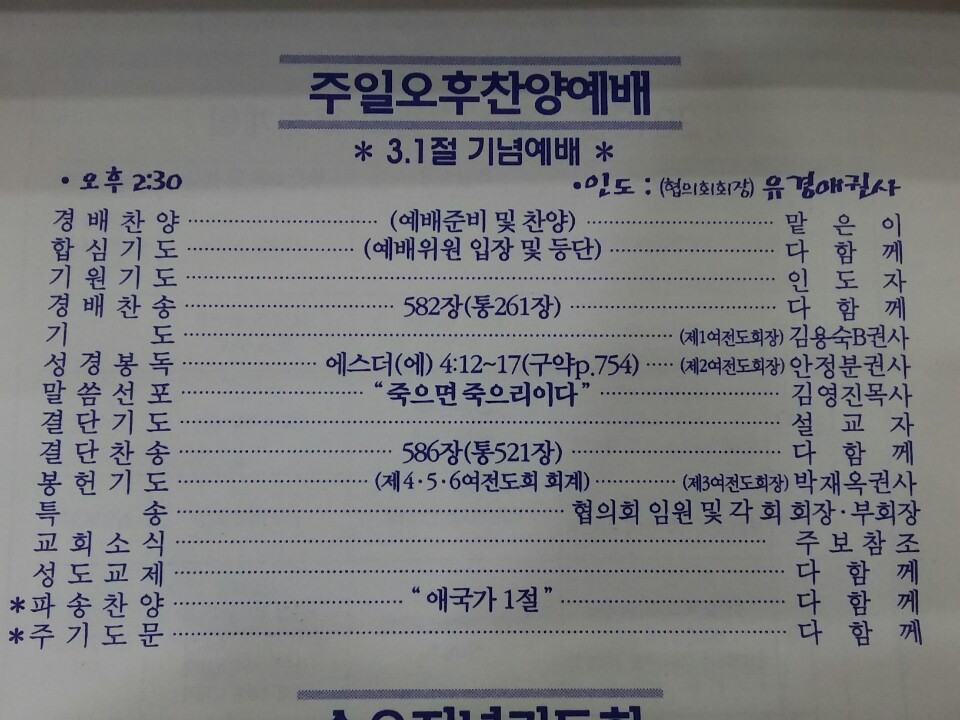 주일오후찬양예배
* 3.1절 기념예배 *
• 오후 2:30 •인도 : (협의회회장) 유경애권사
경배찬양 (예배준비 및 찬양) 맡은이
합심기도 (예배위원 입장 및 등단) 다함께
기원기도 인도자
경배찬송 582장(통261장) 다함께
기도 (제1여전도회장) 김용숙B권사
성경봉독 에스더(에) 4:12~17(구약p.754) (제2여전도회장) 안정분권사
말씀선포 “죽으면 죽으리이다” 김영진목사
결단기도 설교자
결단찬송 586장(통521장) 다함께
봉헌기도 (제4·5·6여전도회 회계) (제3여전도회장) 박재옥권사
특송 협의회 임원 및 각 회 회장·부회장
교회소식 주보참조
성도교제 다함께
*파송찬양 “애국가 1절” 다함께
*주기도문 다함께